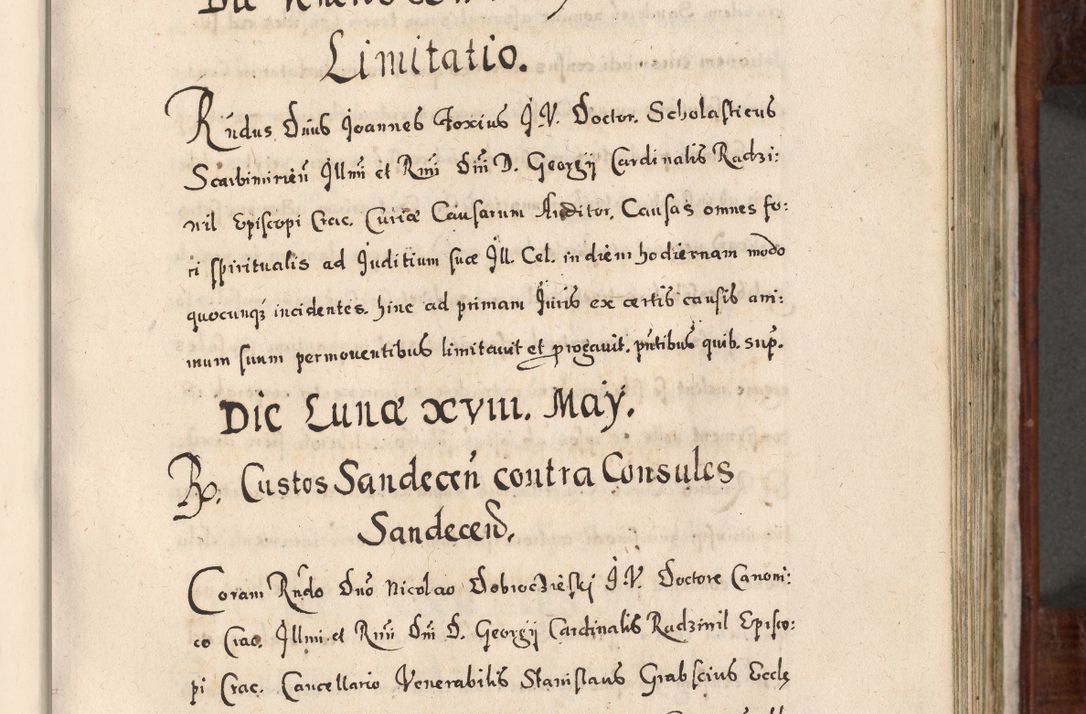 Limitatio.
Rñdus Dñus Joannes Foxius J.V. Doctor. Scholasticus
Scarbimirień Jllm̃i et Rm̃i Dm̃i D. Georgij Cardinalis Radzi:
wil Episcopi Crac. Curiæ Causarum Auditor. Causas omnes fo:
ri spiritualis ad Juditium suæ Jll. Cel. in diem hodiernam modo
quocunqʒ incidentes. hinc ad primam Juris ex certis causis ani:
mum suum permouentibus limitauit et progauit. pñtibus quib. sup.
Die Lunæ XVIII. Maÿ.
Rp. Custos Sandeceñ contra Consules
Sandeceñ.
Coram Rñdo Dño Nicolao Dobroczieski J.V. Doctore Canoni:
co Crac. Jllmi et Rm̃i Dm̃i D. Georgij Cardinalis Radziwil Episco:
pi Crac. Cancellario Venerabilis Stanislaus Grabscius Eccle